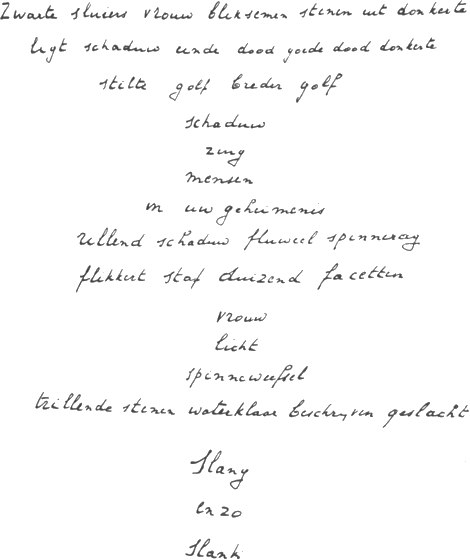 Zwarte sluiers vrouw bliksemen stenen uit donkerte
ligt schaduw einde dood goede dood donkerte
stilte golf breder golf
schaduw
zing
mensen
in uw geheimenis
rillend schaduw fluweel spinnerag
flikkert staf duizend facetten
vrouw
licht
spinneweefsel
trillende stenen waterklaar beschrijven geslacht
Slang
en zo
Slank